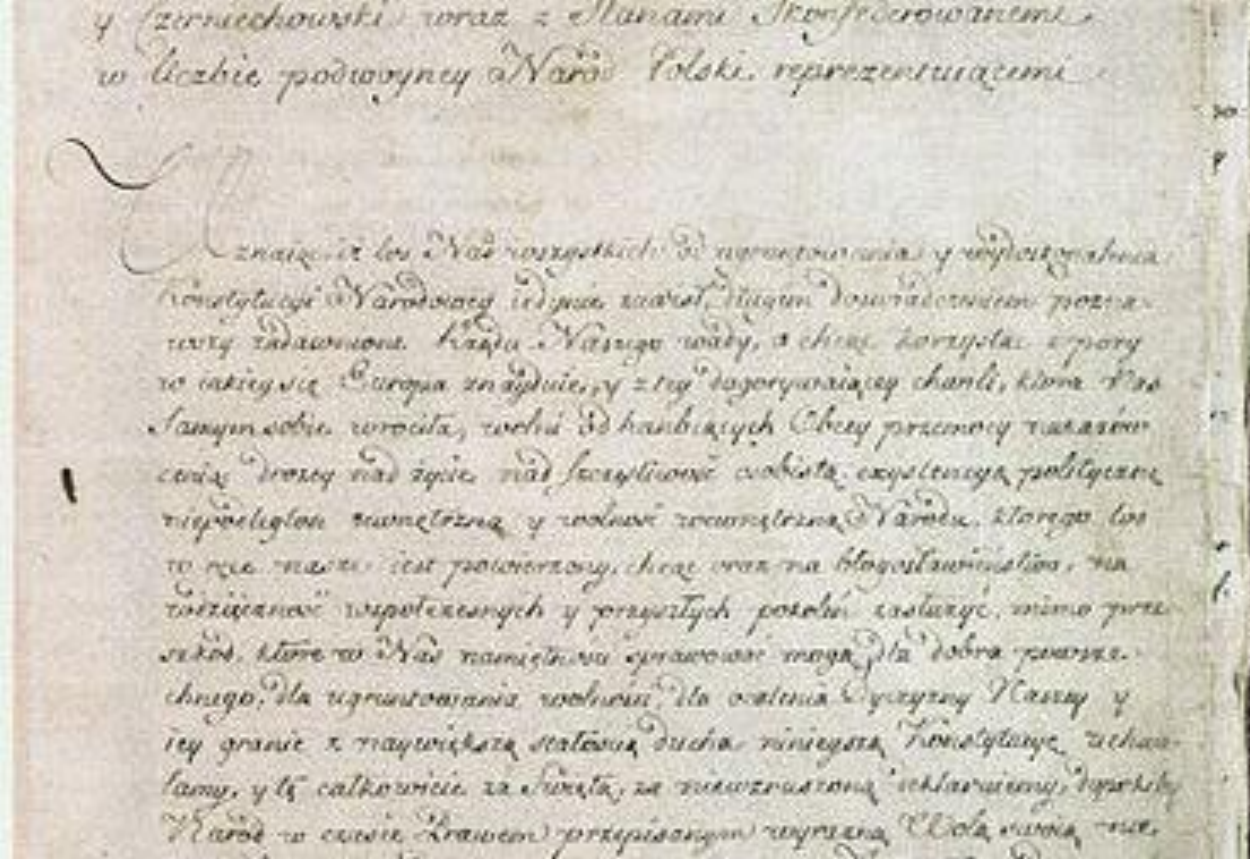 y Czerniechowski wraz z Stanami Skonfederowanemi
w liczbie podwoyney Naród Polski reprezentuiącemi
Uznaiąc, iż los Nas wszystkich od ugruntowania y wydoskonalenia
Konstytucyi Narodowey iedynie zawisł, długim doświadczeniem pozna-
wszy zadawnione Rządu Naszego wady, a chcąc korzystać z pory
w iakiey się Europa znayduie, y z tey dogorywaiącey chwili, która Nas
samym sobie wróciła, wolni od hańbiących Obcey przemocy nakazów
ceniąc drożey nad życie, nad szczęśliwość osobistą, exystencyą polityczną
niepodległość zewnętrzną y wolność wewnętrzną Narodu, którego los
w ręce nasze iest powierzony, chcąc oraz na błogosławieństwo, na
wdzięczność współczesnych y przyszłych pokoleń zasłużyć, mimo prze-
szkód, które w Nas namiętności sprawować mogą, dla dobra powsze-
chnego, dla ugruntowania wolności, dla ocalenia Oyczyzny Naszey y
iey granic z naywiększą stałością ducha, ninieyszą Konstytucyę uchwa-
lamy, y tę całkowicie za świętą, za niewzruszoną deklaruiemy, dopókiby
Naród w czasie Prawem przepisanym wyraźną Wolą swoią nie